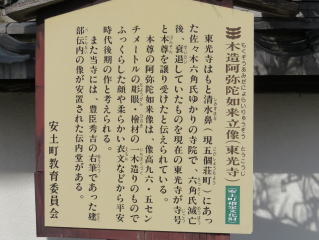 もくぞうあみだにょらいりゅうぞう とうこうじ
木造阿弥陀如来立像(東光寺)
安土町指定文化財
東光寺はもと清水鼻(現五個荘町)にあっ
た佐々木六角氏ゆかりの寺院で、六角氏滅亡
後、衰退していたものを現在の東光寺が寺号
と本尊を譲り受けたと伝えられている。
本尊の阿弥陀如来像は、像高九六・五セン
チメートルの彫眼・檜材の一木造りのもので
ふっくらした顔や柔らかい衣文などから平安
時代後期の作と考えられる。
また当寺には、豊臣秀吉の右筆であった建
部伝内の像が安置された伝内堂がある。
安土町教育委員会